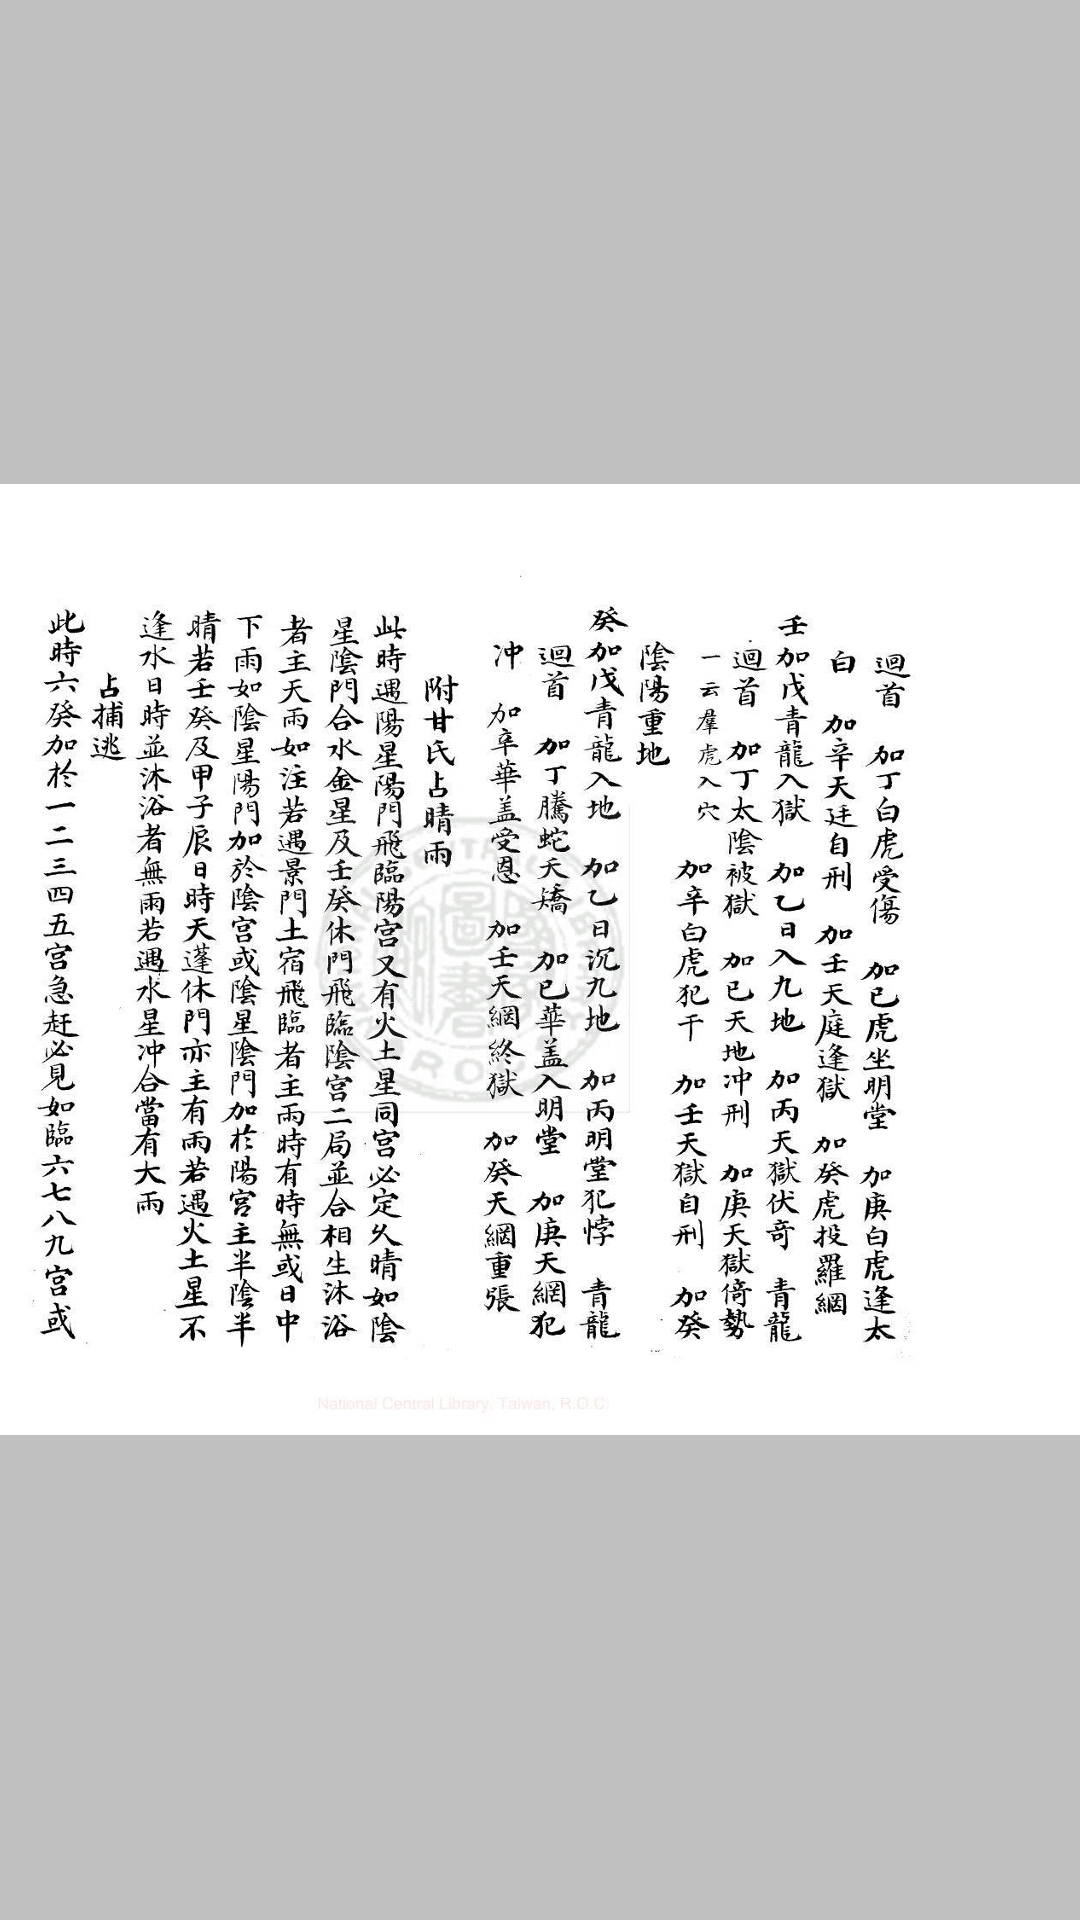 迴首　加丁白虎受傷　加已虎坐明堂　加庚白虎逢太
白　加辛天廷自刑　加壬天庭逢獄　加癸虎投羅網
壬加戊青龍入獄　加乙日入九地　加丙天獄伏奇　青龍
迴首　加丁太陰被獄　加已天地冲刑　加庚天獄倚勢
一云羣虎入穴　加辛白虎犯干　加壬天獄自刑　加癸
陰陽重地
癸加戊青龍入地　加乙日沉九地　加丙明堂犯悖　青龍
迴首　加丁騰蛇夭矯　加已華盖入明堂　加庚天網犯
冲　加辛華盖受恩　加壬天網終獄　加癸天網重張
附甘氏占晴雨
此時遇陽星陽門飛臨陽宫又有火土星同宫必定久晴如陰
星陰門合水金星及壬癸休門飛臨陰宫二局並合相生沐浴
者主天雨如注若遇景門土宿飛臨者主雨時有時無或日中
下雨如陰星陽門加於陰宫或陰星陰門加於陽宫主半陰半
晴若壬癸及甲子辰日時天蓬休門亦主有雨若遇火土星不
逢水日時並沐浴者無雨若遇水星冲合當有大雨
占捕逃
此時六癸加於一二三四五宫急赶必見如臨六七八九宫或
National Central Library, Taiwan, R.O.C.